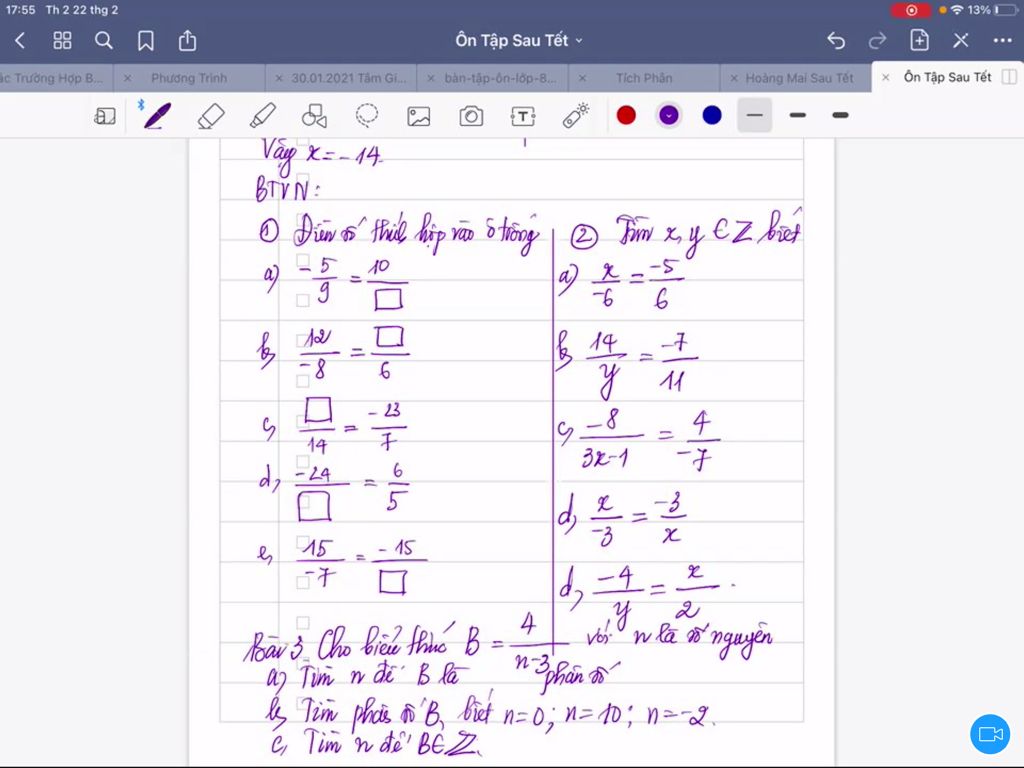 17:55 Th 2 22 thg 2
13%
Ôn Tập Sau Tết
ác Trường Hợp B...
Phương Trình
30.01.2021 Tâm Gi...
bàn-tập-ôn-lớp-8...
Tích Phân
Hoàng Mai Sau Tết
Ôn Tập Sau Tết
Vậy x = -14.
BTVN:
① Điền số thích hợp vào ô trống
a) -5/9 = 10/□
b) 12/-8 = □/6
c) □/14 = -23/7
d) -24/□ = 6/5
e) 15/-7 = -15/□
② Tìm x, y ∈ Z biết
a) x/-6 = -5/6
b) 14/y = -7/11
c) -8/3x-1 = 4/-7
d) x/-3 = -3/x
d) -4/y = x/2
Bài 3 Cho biểu thức B = 4/n-3 với n là số nguyên
a) Tìm n để B là phân số
b) Tìm phân số B, biết n=0; n=10; n=-2.
c) Tìm n để B∈Z.